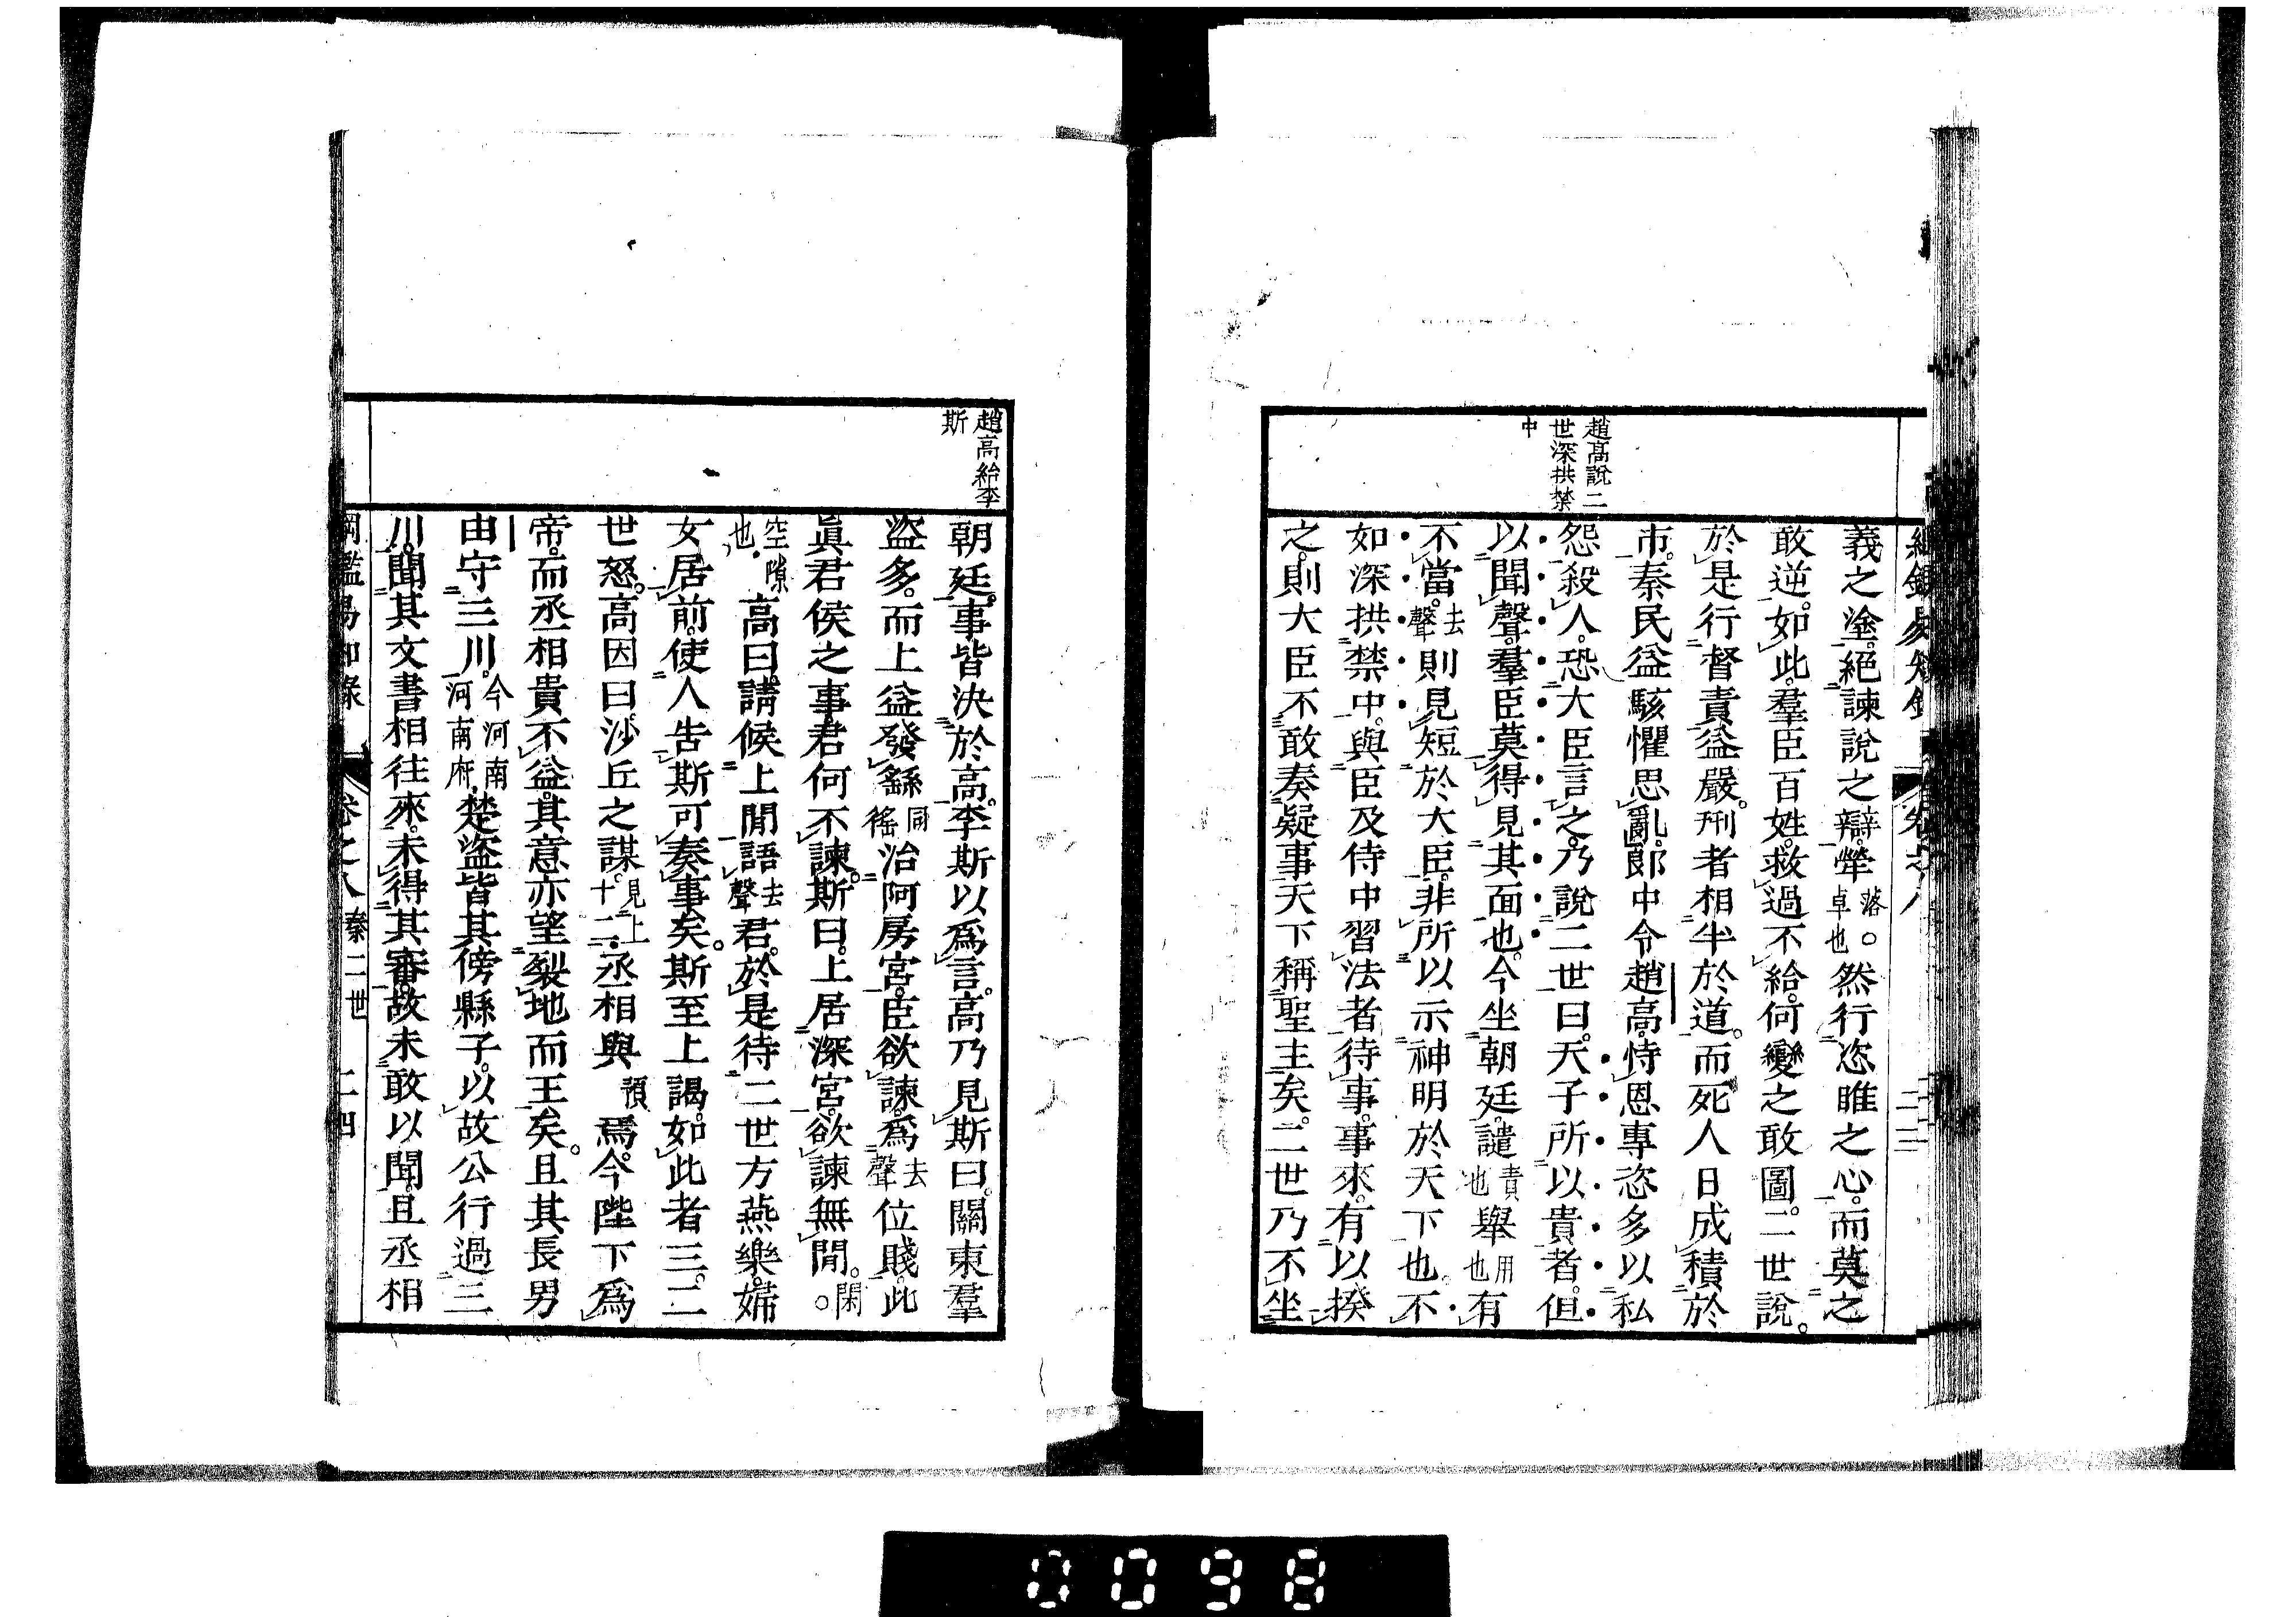 趙高說二
世深拱禁
中
義之塗。絕諫說之辯。犖落○卓也然行恣睢之心。而莫之
敢逆。如此。羣臣百姓。救過不給。何變之敢圖。二世說。
於是行督責益嚴。刑者相半於道。而死人日成積於
市。秦民益駭懼思亂。郎中令趙高。恃恩專恣多以私
怨殺人。恐大臣言之。乃說二世曰。天子所以貴者。但
以聞聲。羣臣莫得見其面也。今坐朝廷。譴責也舉用也有
不當。去聲則見短於大臣。非所以示神明於天下也。不
如深拱禁中。與臣及侍中習法者。待事。事來。有以揆
之。則大臣不敢奏疑事。天下稱聖主矣。二世乃不坐
趙高紿李
斯
朝廷。事皆決於高。李斯以爲言。高乃見斯曰。關東羣
盜多。而上益發繇同徭治阿房宮。臣欲諫。爲去聲位賤。此
眞君侯之事。君何不諫。斯曰。上居深宮。欲諫無閒。閑○
空隙也。高曰。請候上閒語去聲君。於是待二世方燕樂。婦
女居前。使人告斯可奏事矣。斯至上謁。如此者三。二
世怒。高因曰。沙丘之謀。見上十二。丞相與預焉。今陛下爲
帝。而丞相貴不益。其意亦望裂地而王矣。且其長男
由守三川。今河南河南府。楚盜皆其傍縣子。以故公行過三
川。聞其文書相往來。未得其審。故未敢以聞。且丞相
綱鑑易知錄 卷之八 秦二世 二四
0098